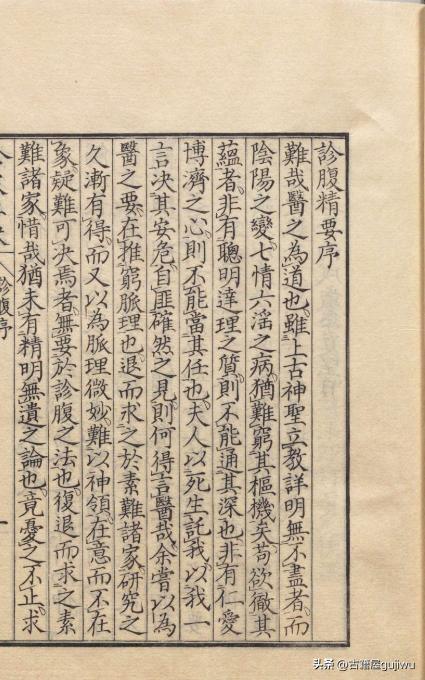 診腹精要序
難哉醫之為道也雖上古神聖立教詳明無不盡者而
陰陽之變七情六淫之病猶難窮其樞機矣苟欲徹其
蘊者非有聰明達理之質則不能通其深也非有仁愛
博濟之心則不能當其任也夫人以死生託我以我一
言決其安危自匪確然之見則何得言醫哉余嘗以為
醫之要在推窮脈理也退而求之於素難諸家研究之
久漸有得而又以為脈理微妙難以神領在意而不在
象疑難可決焉者無要於診腹之法也復退而求之素
難諸家惜哉猶未有精明無遺之論也竟憂之不止求
診腹序
一
头条 @古籍屋gujiwu